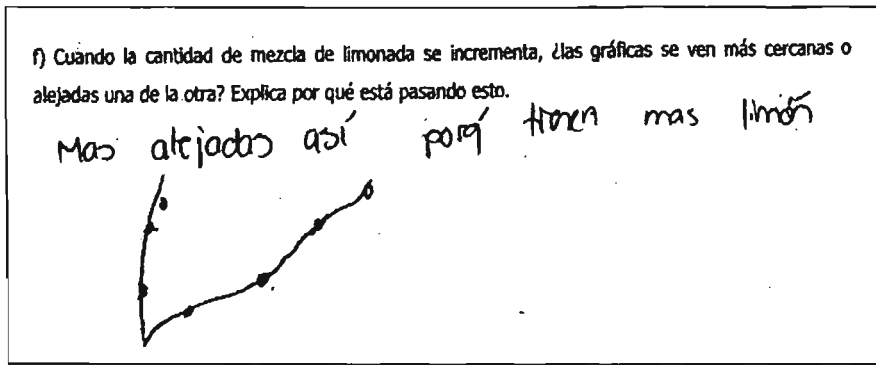 f) Cuando la cantidad de mezcla de limonada se incrementa, ¿las gráficas se ven más cercanas o
alejadas una de la otra? Explica por qué está pasando esto.
Mas alejadas así porq́ tienen mas limón